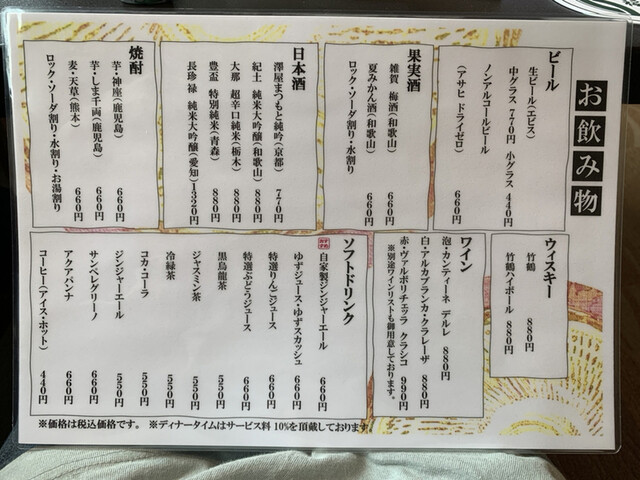 お飲み物
ビール
生ビール(エビス)
中グラス 770円 小グラス 440円
ノンアルコールビール
(アサヒ ドライゼロ) 660円
果実酒
雑賀 梅酒(和歌山) 660円
夏みかん酒(和歌山) 660円
ロック・ソーダ割り・水割り
日本酒
澤屋まつもと純吟(京都) 770円
紀土 純米大吟醸(和歌山) 880円
大那 超辛口純米(栃木) 880円
豊盃 特別純米(青森) 880円
長珍禄 純米大吟醸(愛知)1320円
焼酎
芋・神座(鹿児島) 660円
芋・しま千両(鹿児島) 660円
麦・天草(熊本) 660円
ロック・ソーダ割り・水割り・お湯割り
ウィスキー
竹鶴 880円
竹鶴ハイボール 880円
ワイン
泡・カンティーネ デルレ 880円
白・アルカブランカ・クラレーザ 880円
赤・ヴァルポリチェッラ クラシコ 990円
※別途ワインリストも御用意しております。
ソフトドリンク
自家製ジンジャーエール 660円
ゆずジュース・ゆずスカッシュ 660円
特選りんごジュース 660円
特選ぶどうジュース 660円
黒烏龍茶 550円
ジャスミン茶 550円
冷緑茶 550円
コカ・コーラ 550円
ジンジャーエール 550円
サンペレグリーノ 660円
アクアパンナ 660円
コーヒー(アイス・ホット) 440円
※価格は税込価格です。 ※ディナータイムはサービス料 10%を頂戴しております。